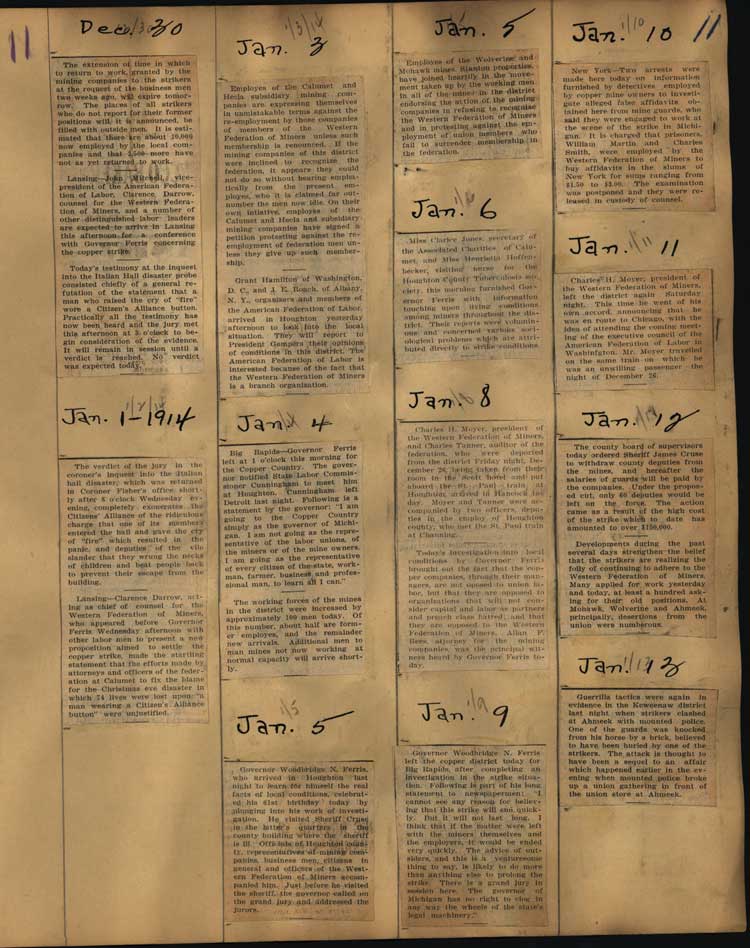 11
Dec. 30
The extension of time in which
to return to work granted by the
mining companies to the strikers
at the request of the business men
two weeks ago, will expire tomor-
row. The places of all strikers
who do not report for their former
positions will, it is announced, be
filled with outside men. It is esti-
mated that there are about 10,000
now employed by the local com-
panies and that 2,500 more have
not as yet returned to work.
Lansing—John Mitchell, vice-
president of the American Federa-
tion of Labor, Clarence Darrow,
counsel for the Western Federa-
tion of Miners, and a number of
other distinguished labor leaders
are expected to arrive in Lansing
this afternoon for a conference
with Governor Ferris concerning
the copper strike.
Today's testimony at the inquest
into the Italian Hall disaster probe
consisted chiefly of a general re-
futation of the statement that a
man who raised the cry of "fire"
wore a Citizen's Alliance button.
Practically all the testimony has
now been heard and the jury met
this afternoon at 5 o'clock to be-
gin consideration of the evidence.
It will remain in session until a
verdict is reached. No verdict
was expected today.
Jan. 1-1914
The verdict of the jury in the
coroner's inquest into the Italian
hall disaster, which was returned
in Coroner Fisher's office short-
ly after 6 o'clock Wednesday ev-
ening, completely exonerates the
Citizens' Alliance of the ridiculous
charge that one of its members
entered the hall and gave the cry
of "fire" which resulted in the
panic, and deputies of the vile
slander that they wrung the necks
of children and beat people back
to prevent their escape from the
building.
Lansing—Clarence Darrow, act-
ing as chief of counsel for the
Western Federation of Miners,
who appeared before Governor
Ferris Wednesday afternoon with
other labor men to present a new
proposition aimed to settle the
copper strike, made the startling
statement that the efforts made by
attorneys and officers of the feder-
ation at Calumet to fix the blame
for the Christmas eve disaster in
which 74 lives were lost upon "a
man wearing a Citizen's Alliance
button" were unjustified.
Jan. 3
1/3/14
Employes of the Calumet and
Hecla subsidiary mining com-
panies are expressing themselves
in unmistakable terms against the
re-employment by those companies
of members of the Western
Federation of Miners unless such
membership is renounced. If the
mining companies of this district
were inclined to recognize the
federation, it appears they could
not do so without hearing empha-
tically from the present em-
ployes, who it is claimed far out-
number the men now idle. On their
own iniative, employes of the
Calumet and Hecla and subsidiary
mining companies have signed a
petition protesting against the re-
employment of federation men un-
less they give up such member-
ship.
Grant Hamilton of Washington,
D. C., and J. E. Roach, of Albany,
N. Y., organizers and members of
the American Federation of Labor,
arrived in Houghton yesterday
afternoon to look into the local
situation. They will report to
President Gompers their opinions
of conditions in this district. The
American Federation of Labor is
interested because of the fact that
the Western Federation of Miners
is a branch organization.
Jan. 4
Big Rapids—Governor Ferris
left at 1 o'clock this morning for
the Copper Country. The gover-
nor notified State Labor Commis-
sioner Cunningham to meet him
at Houghton. Cunningham left
Detroit last night. Following is a
statement by the governor: "I am
going to the Copper Country
simply as the governor of Michi-
gan. I am not going as the repre-
sentative of the labor unions, of
the miners or of the mine owners.
I am going as the representative
of every citizen of the state, work-
man, farmer, business and profes-
sional man, to learn all I can."
The working forces of the mines
in the district were increased by
approximately 100 men today. Of
this number, about half are form-
er employes, and the remainder
new arrivals. Additional men to
man mines not now working at
normal capacity will arrive short-
ly.
1/5
Jan. 5
Governor Woodbridge N. Ferris,
who arrived in Houghton last
night to learn for himself the real
facts of local conditions, celebrat-
ed his 61st birthday today by
plunging into his work of investi-
gation. He visited Sheriff Cruse
in the latter's quarters in the
county building where the sheriff
is ill. Officials of Houghton coun-
ty, representatives of mining com-
panies, business men, citizens in
general and officers of the West-
ern Federation of Miners accom-
panied him. Just before he visited
the sheriff, the governor called on
the grand jury and addressed the
jurors.
Jan. 5
Employe of the Wolverine and
Mohawk mines, Stanton properties,
have joined heartily in the move-
ment taken up by the working men
in all of the mines in the district
endorsing the action of the mining
companies in refusing to recognize
the Western Federation of Miners
and in protesting against the em-
ployment of union members who
fail to surrender membership in
the federation.
Jan. 6
Miss Clarice Jones, secretary of
the Associated Charities of Calu-
met, and Miss Henrietta Hoffen-
becker, visiting nurse for the
Houghton County Tuberculosis so-
ciety, this morning furnished Gov-
ernor Ferris with information
touching upon living conditions
among miners throughout the dis-
trict. Their reports were volumin-
ous and concerned various soci-
ological problems which are attri-
buted directly to strike conditions.
Jan. 8
Charles H. Moyer, president of
the Western Federation of Miners,
and Charles Tanner, auditor of the
federation, who were deported
from the district Friday night, De-
cember 26, being taken from their
room in the Scott hotel and put
aboard the St. Paul train at
Houghton, arrived in Hancock to-
day. Moyer and Tanner were ac-
companied by two officers, depu-
ties in the employ of Houghton
county, who met the St. Paul train
at Channing.
Today's investigation into local
conditions by Governor Ferris
brought out the fact that the cop-
per companies, through their man-
agers, are not opposed to union la-
bor, but that they are opposed to
organizations that will not con-
sider capital and labor as partners
and preach class hatred, and that
they are opposed to the Western
Federation of Miners. Allan F.
Rees, attorney for the mining
companies, was the principal wit-
ness heard by Governor Ferris to-
day.
Jan. 9
1/9
Governor Woodbridge N. Ferris
left the copper district today for
Big Rapids, after completing an
investigation in the strike situa-
tion. Following is part of his long
statement to newspapermen: "I
cannot see any reason for believ-
ing that this strike will end quick-
ly. But it will not last long. I
think that if the matter were left
with the miners themselves and
the employers, it would be ended
very quickly. The advice of out-
siders, and this is a venturesome
thing to say, is likely to do more
than anything else to prolong the
strike. There is a grand jury in
session here. The governor of
Michigan has no right to clog in
any way the wheels of the state's
legal machinery."
Jan. 10
1/10
11
New York—Two arrests were
made here today on information
furnished by detectives employed
by copper mine owners to investi-
gate alleged false affidavits ob-
tained here from mine guards, who
said they were engaged to work at
the scene of the strike in Michi-
gan. It is charged that prisoners,
William Martin and Charles
Smith, were employed by the
Western Federation of Miners to
buy affidavits in the slums of
New York for sums ranging from
$1.50 to $3.00. The examination
was postponed and they were re-
leased in custody of counsel.
Jan. 11
1/11
Charles H. Moyer, president of
the Western Federation of Miners,
left the district again Saturday
night. This time he went of his
own accord, announcing that he
was en route to Chicago, with the
idea of attending the coming meet-
ing of the executive council of the
American Federation of Labor in
Washinfgton. Mr. Moyer travelled
on the same train on which he
was an unwilling passenger the
night of December 26.
Jan. 12
The county board of supervisors
today ordered Sheriff James Cruse
to withdraw county deputies from
the mines, and hereafter the
salaries of guards will be paid by
the companies. Under the propos-
ed cut, only 66 deputies would be
left on the force. The action
came as a result of the high cost
of the strike which to date has
amounted to over $150,000.
Developments during the past
several days strengthen the belief
that the strikers are realizing the
folly of continuing to adhere to the
Western Federation of Miners.
Many applied for work yesterday
and today, at least a hundred ask-
ing for their old positions. At
Mohawk, Wolverine and Ahmeek,
principally, desertions from the
union were numerous.
Jan. 13
Guerrilla tactics were again in
evidence in the Keweenaw district
last night when strikers clashed
at Ahmeek with mounted police.
One of the guards was knocked
from his horse by a brick, believed
to have been hurled by one of the
strikers. The attack is thought to
have been a sequel to an affair
which happened earlier in the ev-
ening when mounted police broke
up a union gathering in front of
the union store at Ahmeek.